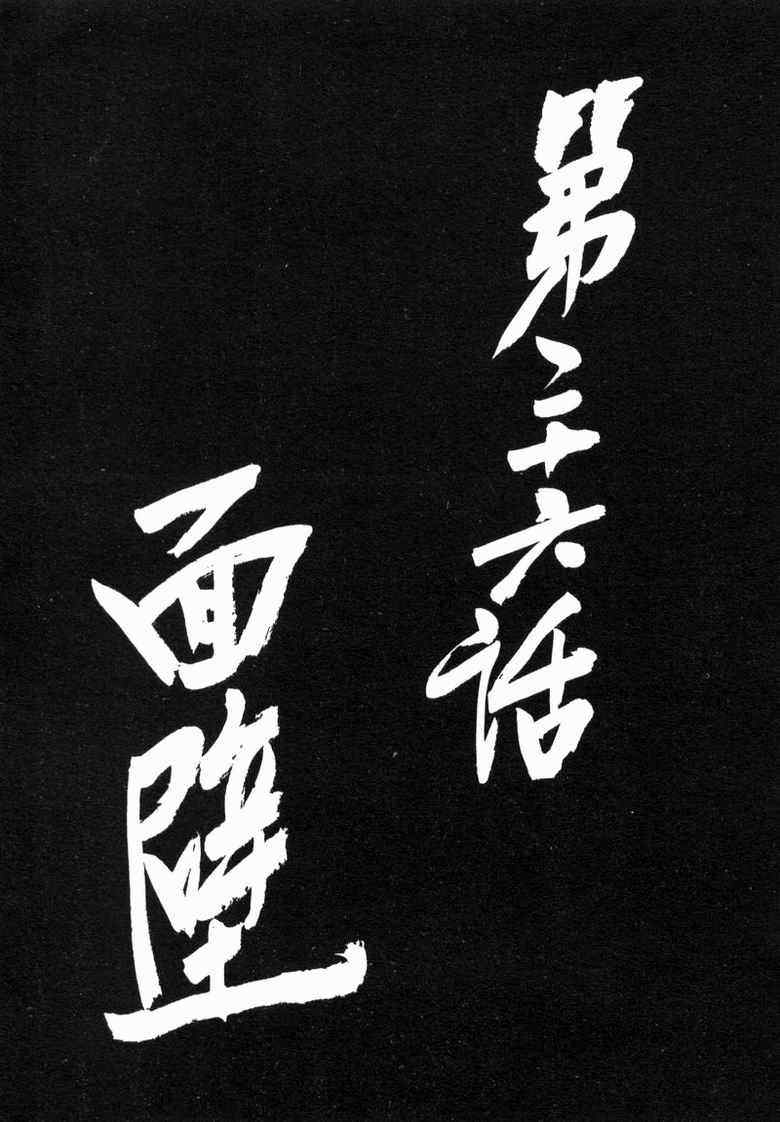 第二十六話
面壁